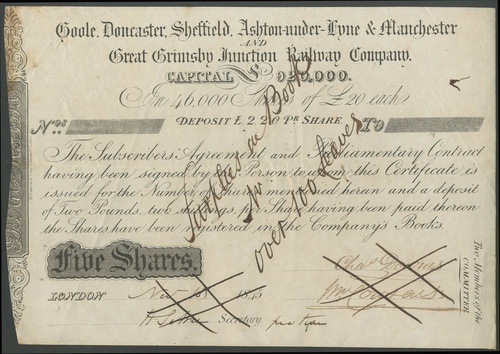 Goole, Doncaster, Sheffield, Ashton-under-Lyne & Manchester
AND
Great Grimsby Junction Railway Company.
CAPITAL £920,000.
In 46,000 Shares of £20 each
DEPOSIT £2.2.0 PR. SHARE
Nos. To
The Subscribers' Agreement and Parliamentary Contract
having been signed by the Person to whom this Certificate is
issued for the Number of Shares mentioned herein and a deposit
of Two Pounds, two shillings, per Share having been paid thereon
the Shares have been registered in the Company's Books.
Five Shares.
LONDON 1845
Secretary pro tem
Two Members of the
COMMITTEE
in Book
over 100 Leaves